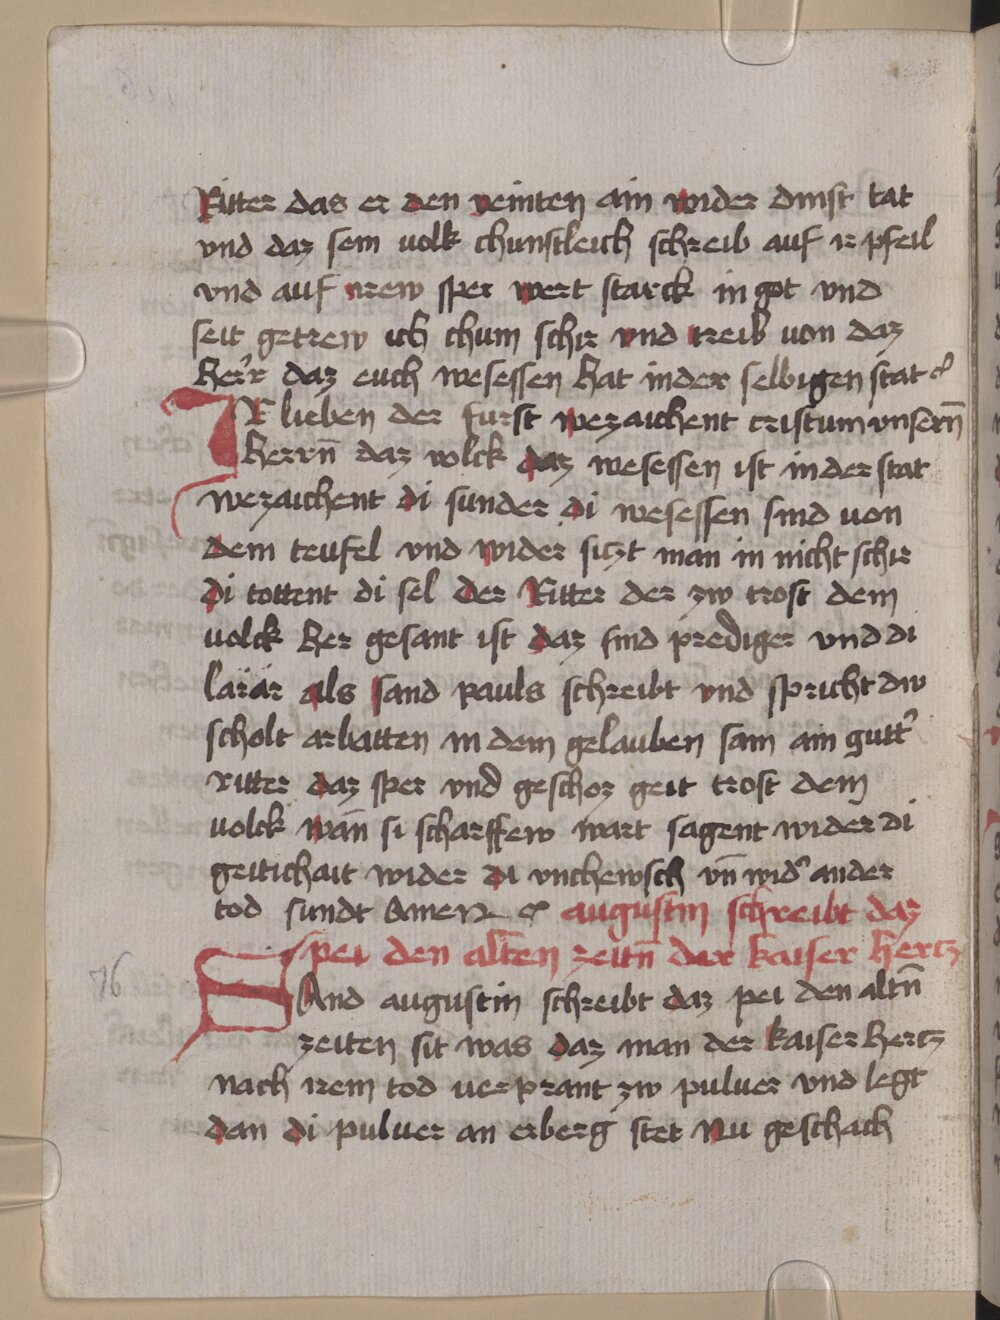 Ritter das er den veinten ain wider dinst tat
vnd daz sein uolk chunstleich schreib auf ir pfeil
vnd auf irew sper wert starck in got vnd
seit getrew ich chum schir vnd treib uon daz
herr daz euch wesessen hat in der selbigen stat
Ir lieben der furst wezaichent cristum vnsern̄
herrn̄ daz volck daz wesessen ist in der stat
wezaichent di sunder di wesessen sind uon
dem teufel vnd wider siczt man in nicht schir
di tottent di sel der Ritter der zw trost dem
uolck her gesant ist daz sind prediger vnd di
larär als sand pauls schreibt vnd spricht dw
scholt arbatten in dem gelauben sam ain gutt᾽
ritter daz sper vnd geschoz geit trost dem
uolck wān si scharffew wart sagent wider di
geitichait wider di vnchewsch vn̄ wid᾽ ander
tod sundt Amen augustin schreibt daz
pei den alten zeitn̄ der kaiser hertz
76
SAnd augustin schreibt daz pei den altn̄
zeiten sit was daz man der kaiser hertz
nach irem tod uerprant zw puluer vnd legt
dan di puluer an erberg stet Nu geschach